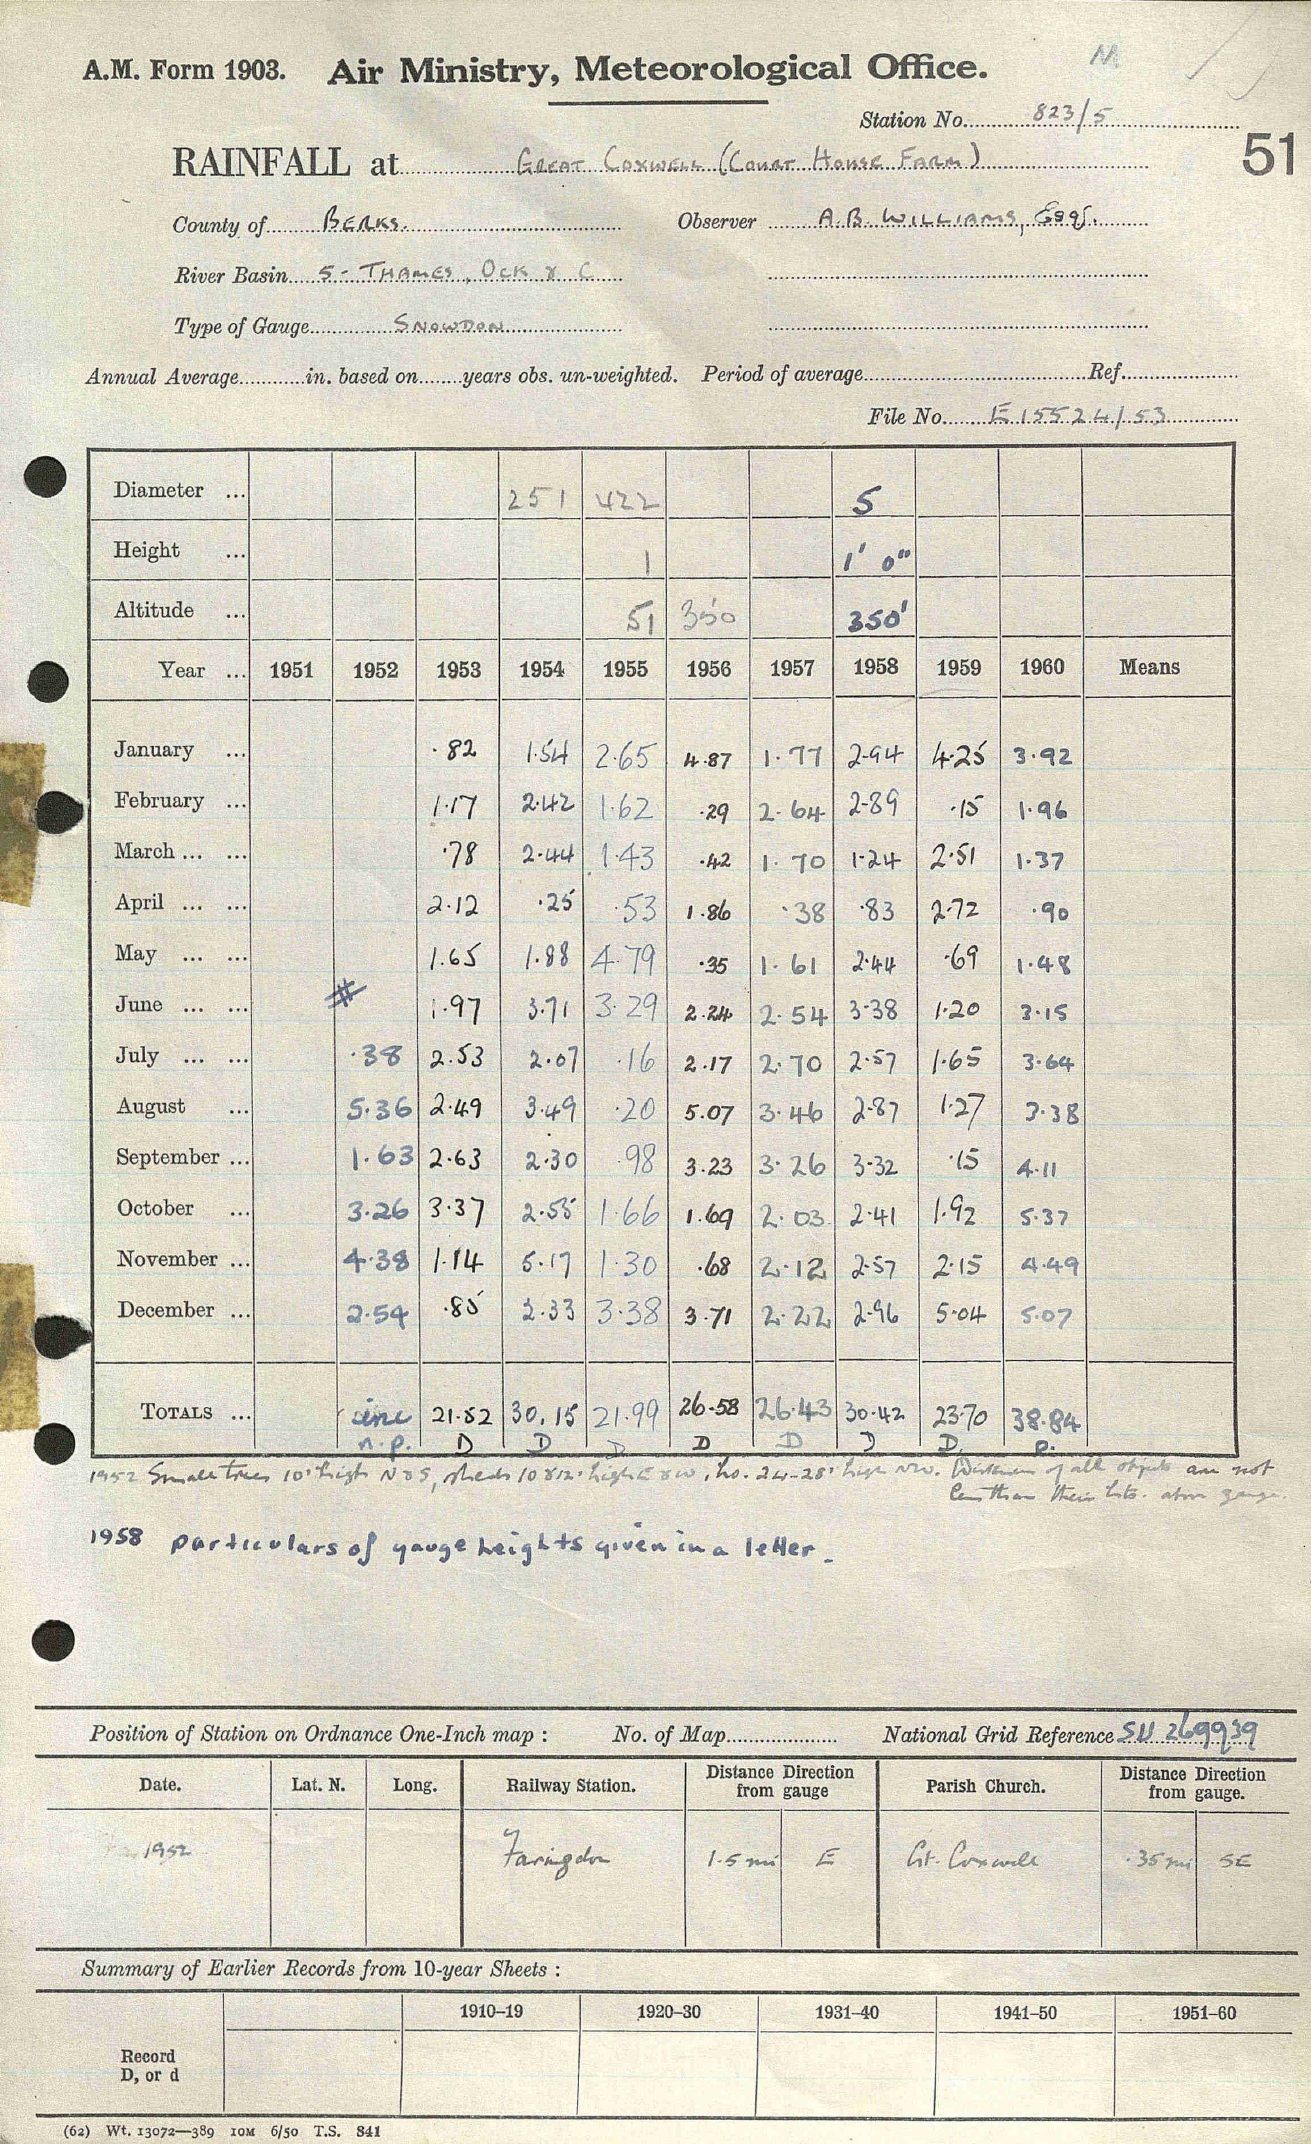 M
A.M. Form 1903. Air Ministry, Meteorological Office.
Station No. 823/5
51
RAINFALL at GREAT COXWELL (COURT HOUSE FARM)
County of BERKS. Observer A.B. WILLIAMS, Esq.
River Basin 5 - THAMES, OCK & C
Type of Gauge SNOWDON
Annual Average in. based on years obs. un-weighted. Period of average Ref.
File No. E 15524/53
Diameter ... 251 422 5
Height ... 1 1' 0"
Altitude ... 51 350 350'
Year ... 1951 1952 1953 1954 1955 1956 1957 1958 1959 1960 Means
January ... .82 1.54 2.65 4.87 1.77 2.94 4.25 3.92
February ... 1.17 2.42 1.62 .29 2.64 2.89 .15 1.96
March ... ... .78 2.44 1.43 .42 1.70 1.24 2.51 1.37
April ... ... 2.12 .25 .53 1.86 .38 .83 2.72 .90
May ... ... 1.65 1.88 4.79 .35 1.61 2.44 .69 1.48
June ... ... # 1.97 3.71 3.29 2.24 2.54 3.38 1.20 3.15
July ... ... .38 2.53 2.07 .16 2.17 2.70 2.57 1.65 3.64
August ... 5.36 2.49 3.49 .20 5.07 3.46 2.87 1.27 3.38
September ... 1.63 2.63 2.30 .98 3.23 3.26 3.32 .15 4.11
October ... 3.26 3.37 2.55 1.66 1.69 2.03 2.41 1.92 5.37
November ... 4.38 1.14 5.17 1.30 .68 2.12 2.57 2.15 4.49
December ... 2.54 .85 2.33 3.38 3.71 2.22 2.96 5.04 5.07
TOTALS ... inc 21.52 30.15 21.99 26.58 26.43 30.42 23.70 38.84
n.p. D D D D D D D P.
1952 Small trees 10' high N & S, sheds 10 & 12' high E & W, ho. 24-28' high NW. Distances of all objects are not
less than their hts. above gauge.
1958 particulars of gauge heights given in a letter.
Position of Station on Ordnance One-Inch map : No. of Map National Grid Reference SU 269939
Date. Lat. N. Long. Railway Station. Distance Direction from gauge Parish Church. Distance Direction from gauge.
1952 Faringdon 1.5 mi E Gt. Coxwell .35 mi SE
Summary of Earlier Records from 10-year Sheets :
1910–19 1920–30 1931–40 1941–50 1951–60
Record
D, or d
(62) Wt. 13072—389 10M 6/50 T.S. 841